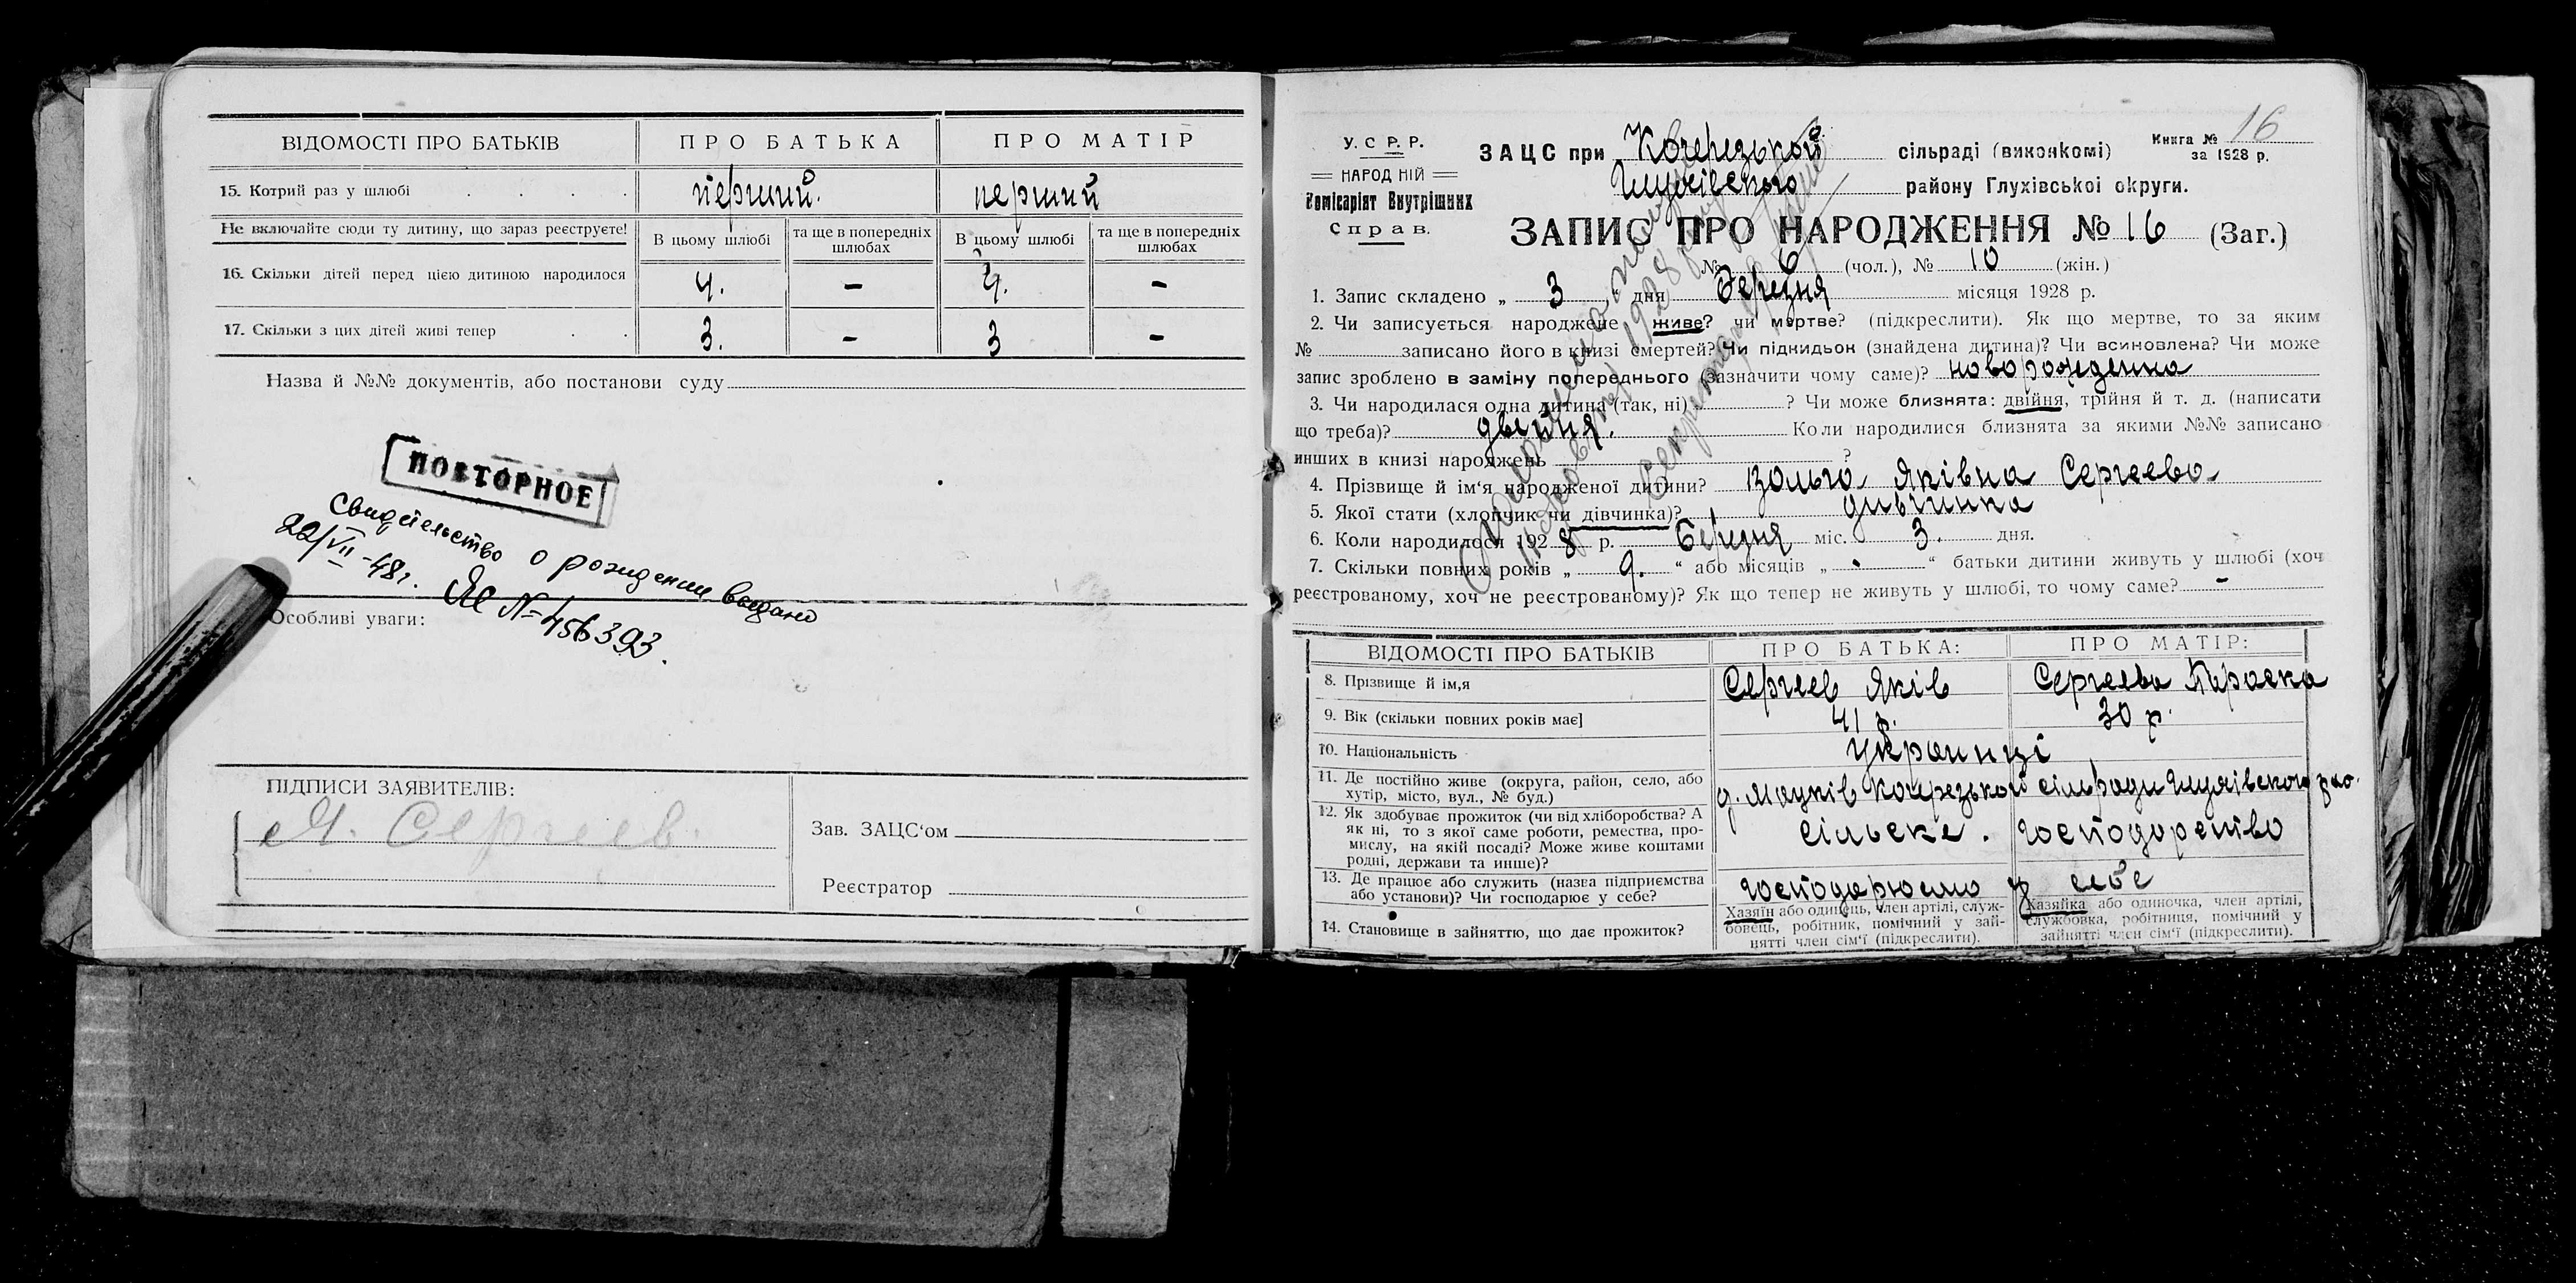 ВІДОМОСТІ ПРО БАТЬКІВ ПРО БАТЬКА ПРО МАТІР
15. Котрий раз у шлюбі . . . . перший. перший
Не включайте сюди ту дитину, що зараз реєструєте! В цьому шлюбі та ще в попередніх шлюбах В цьому шлюбі та ще в попередніх шлюбах
16. Скільки дітей перед цією дитиною народилося 4. – 4. –
17. Скільки з цих дітей живі тепер . . 3. – 3 –
Назва й №№ документів, або постанови суду
ПОВТОРНОЕ
Свидетельство о рождении выдано
22/VII-48г. ЯЕ №456393.
Особливі уваги:
ПІДПИСИ ЗАЯВИТЕЛІВ:
Я. Сергеев.
Зав. ЗАЦС'ом
Реєстратор
У. С. Р. Р.
НАРОДНІЙ
Комісаріят Внутрішних
Справ.
ЗАЦС при Кочерезькой сільраді (виконкомі)
Глухівського району Глухівської округи.
Книга № 16
за 1928 р.
ЗАПИС ПРО НАРОДЖЕННЯ № 16 (Заг.)
№ 6 (чол.), № 10 (жін.)
1. Запис складено „ 3 “ дня Березня місяця 1928 р.
2. Чи записується народжене живе? чи мертве? (підкреслити). Як що мертве, то за яким
№ записано його в книзі смертей? Чи підкидьок (знайдена дитина)? Чи всиновлена? Чи може
запис зроблено в заміну попереднього (зазначити чому саме)? новорожденна
3. Чи народилася одна дитина (так, ні) ? Чи може близнята: двійня, трійня й т. д. (написати
що треба)? двейня. Коли народилися близнята за якими №№ записано
инших в книзі народжень ?
4. Прізвище й ім‘я народженої дитини? Вольга Яківна Сергеева
5. Якої стати (хлопчик чи дівчинка)? дивчинка
6. Коли народилося 1928 р. Березня міс. 3. дня.
7. Скільки повних років „ 9. “ або місяців „ “ батьки дитини живуть у шлюбі (хоч
реєстрованому, хоч не реєстрованому)? Як що тепер не живуть у шлюбі, то чому саме? –
ВІДОМОСТІ ПРО БАТЬКІВ ПРО БАТЬКА: ПРО МАТІР:
8. Прізвище й ім,я Сергеев Яків Сергеева Параска
9. Вік (скільки повних років має] 41 р. 30 р.
10. Національність Украинці
11. Де постійно живе (округа, район, село, або
хутір, місто, вул., № буд.)
Кочерезькой сільради Глухівского рао.
12. Як здобуває прожиток (чи від хліборобства? А
як ні, то з якої саме роботи, ремества, про-
мислу, на якій посаді? Може живе коштами
родні, держави та инше)?
сільске. господарство
13. Де працює або служить (назва підприємства
або установи)? Чи господарює у себе?
господарюемо у себе
14. Становище в зайняттю, що дає прожиток?
Хазяїн або одинець, член артілі, служ-
бовець, робітник, помічний у зай-
нятті член сім‘ї (підкреслити).
Хазяйка або одиночка, член артілі,
службовка, робітниця, помічний у
зайнятті член сім‘ї (підкреслити).